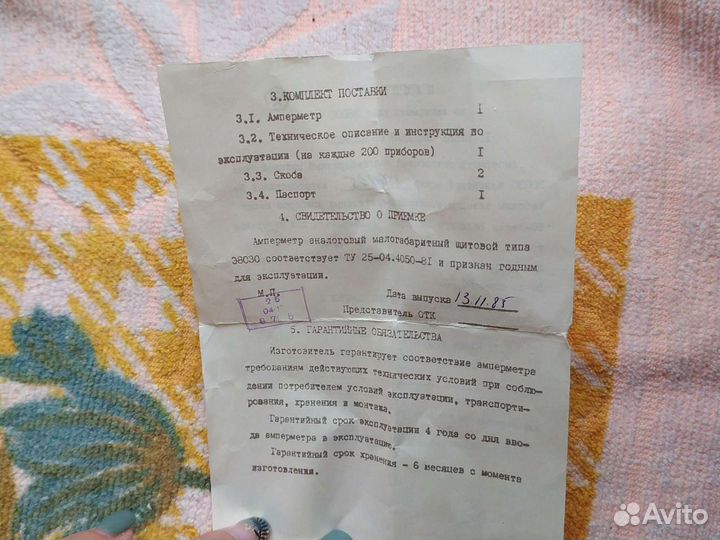 3.КОМПЛЕКТ ПОСТАВКИ
3.I. Амперметр I
3.2. Техническое описание и инструкция по
эксплуатации (на каждые 200 приборов) I
3.3. Скоба 2
3.4. Паспорт I
4. СВИДЕТЕЛЬСТВО О ПРИЕМКЕ
Амперметр аналоговый малогабаритный щитовой типа
Э8030 соответствует ТУ 25-04.4050-8I и признан годным
для эксплуатации.
М.П. Дата выпуска 13.11.85
Представитель ОТК
5. ГАРАНТИЙНЫЕ ОБЯЗАТЕЛЬСТВА
Изготовитель гарантирует соответствие амперметра
требованиям действующих технических условий при соблю-
дении потребителем условий эксплуатации, транспорти-
рования, хранения и монтажа.
Гарантийный срок эксплуатации 4 года со дня вво-
да амперметра в эксплуатацию.
Гарантийный срок хранения - 6 месяцев с момента
изготовления.
Avito